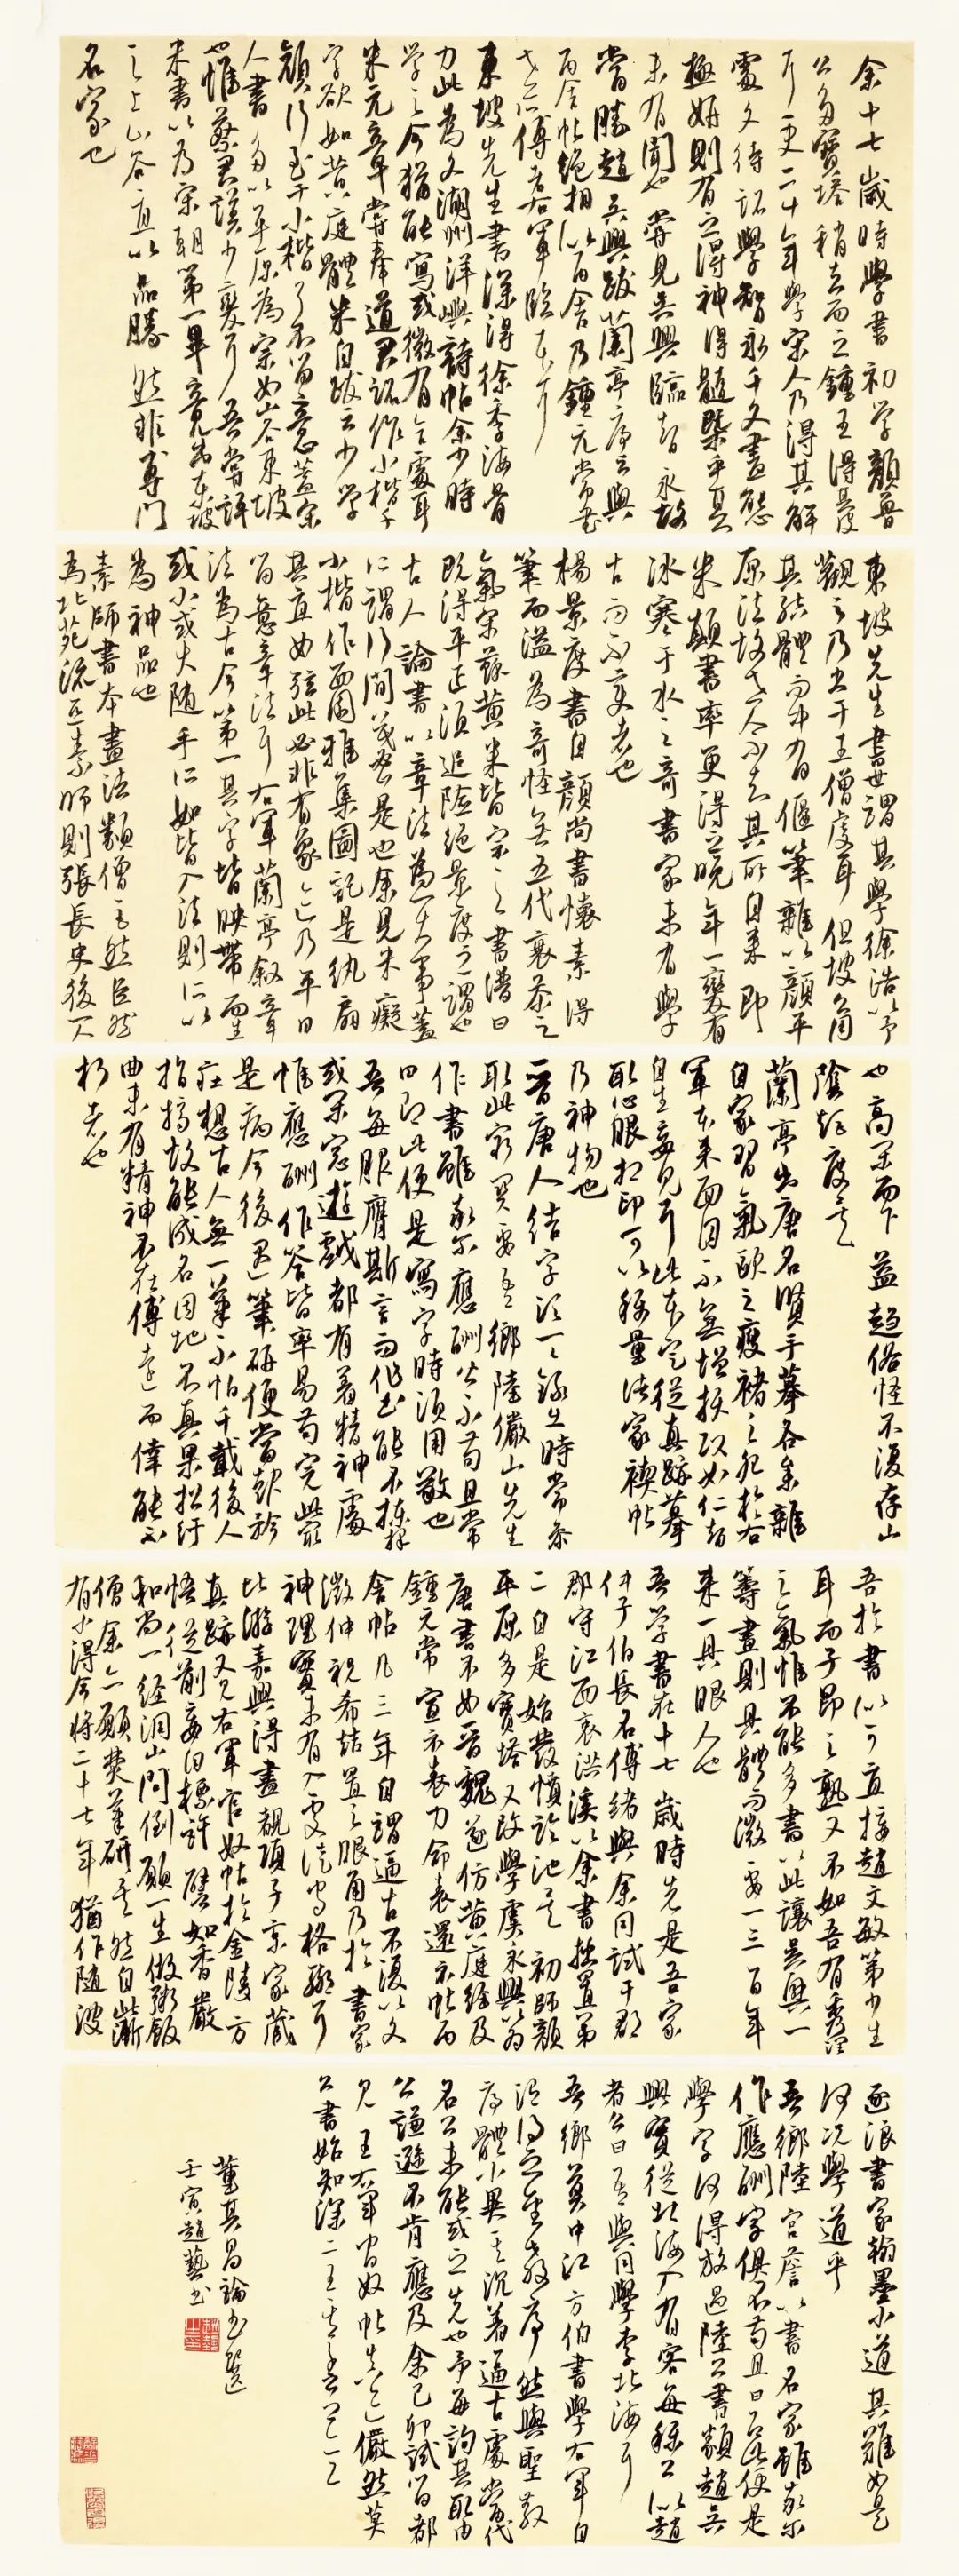 余十七歲時學書初学顏魯
公多寶塔稍去而之鍾王得其皮
耳更二十年學宋人乃得其解
處文待詔學智永千文盡態
極妍則有之得神得髓槩乎其
未有聞也嘗見吳興臨智永故
當勝趙吳興跋蘭亭序云與
丙舍帖絕相似丙舍乃鍾元常書
世所傳者右軍臨本耳
東坡先生書深得徐季海骨
力此為文湖州洋嶼詩帖余少時
学之今猶能寫或微有合處耳
米元章嘗奉道君詔作小楷千
字欲如黄庭體米自跋云少学
顏行至于小楷了不留意蓋宋
人書多以平原為宗如山谷東坡
也惟蔡君謨少變耳吾嘗評
米書以為宋朝第一畢竟出東坡
之上山谷直以品勝然非專門
名家也
東坡先生書世謂其學徐浩以予
觀之乃出于王僧虔耳但坡角
其結體而中有偃筆雜以顏平
原法故世人不知其所自来即
米顛書率更得之晚年一變有
冰寒于水之奇書家未有學
古而不变者也
楊景度書自顏尚書懷素得
筆而溢為奇怪無五代衰茶之
氣宋蘇黄米皆宗之書譜曰
既得平正須追險絕景度之謂也
古人論書以章法為一大事蓋
所謂行間茂密是也余見米癡
小楷作西園雅集圖記是紈扇
其直如弦此必非有象乃平日
留意章法耳右軍蘭亭叙章
法為古今第一其字皆映帶而生
或小或大随手所如皆入法則所以
為神品也
素師書本畫法類僧巨然巨然
為北苑流亞素師則張長史後一人
也高閑而下益趨俗怪不復存山
陰矩度矣
蘭亭出唐名賢手摹各參雜
自家習氣歐之瘦褚之肥於右
軍本来面目不無增損政如仁智
自生妄見耳此本定從真跡摹
取心眼相印可以稱量法家禊帖
乃神物也
晋唐人结字須一一錄出時常參
取此最關要吾鄉陸儼山先生
作書雖率尔應酬公不苟且常
曰即此便是寫字時須用敬也
吾每服膺斯言而作书能不揀擇
或閑窓遊戲都有着精神處
惟應酬作答皆率易苟完此最
是病今後遇筆研便當起矜
莊想古人無一筆不怕千載後人
指摘故能成名因地不真果招紆
曲未有精神不在傅遠而倖能不
朽者也
吾於書似可直接趙文敏第少生
耳而子昂之熟又不如吾有秀潤
之氣惟不能多書以此讓吳興一
籌畫則具體而微要一三百年
来一具眼人也
吾学書在十七歲時先是吾家
仲子伯長名傅緒與余同試于郡
郡守江西袁洪溪以余書拙置第
二自是始發憤臨池矣初師顏
平原多寶塔又改學虞永興以為
唐書不如晋魏遂仿黄庭經及
鍾元常宣示表力命表還示帖丙
舍帖凡三年自謂逼古不復以文
徴仲祝希喆置之眼角乃於書家
神理實未有入處徒守格轍耳
比游嘉興得盡覩項子京家藏
真跡又見右軍官奴帖於金陵方
悟從前妄自標許譬如香嚴
和尚一經洞山問倒願一生做粥飯
僧余亦願焚筆研矣然自此漸
有小得今將二十七年猶作隨波
逐浪書家翰墨小道其難如是
何况學道乎
吾鄉陸宮詹以書名家雖率尔
作應酬字俱不苟且曰即此便是
學字何得放過陸公書類趙吳
興實從北海入有客每稱公似趙
者公曰吾與同學李北海耳
吾鄉莫中江方伯書學右軍自
謂得之聖教序然與聖教
序體小異其沉着逼古處當代
名公未能或之先也予每詢其所由
公謙遜不肯應及余己卯試留都
見王右軍官奴帖真跡儼然莫
公書始知深二王其書不二
董其昌論书選
壬寅趙藝书